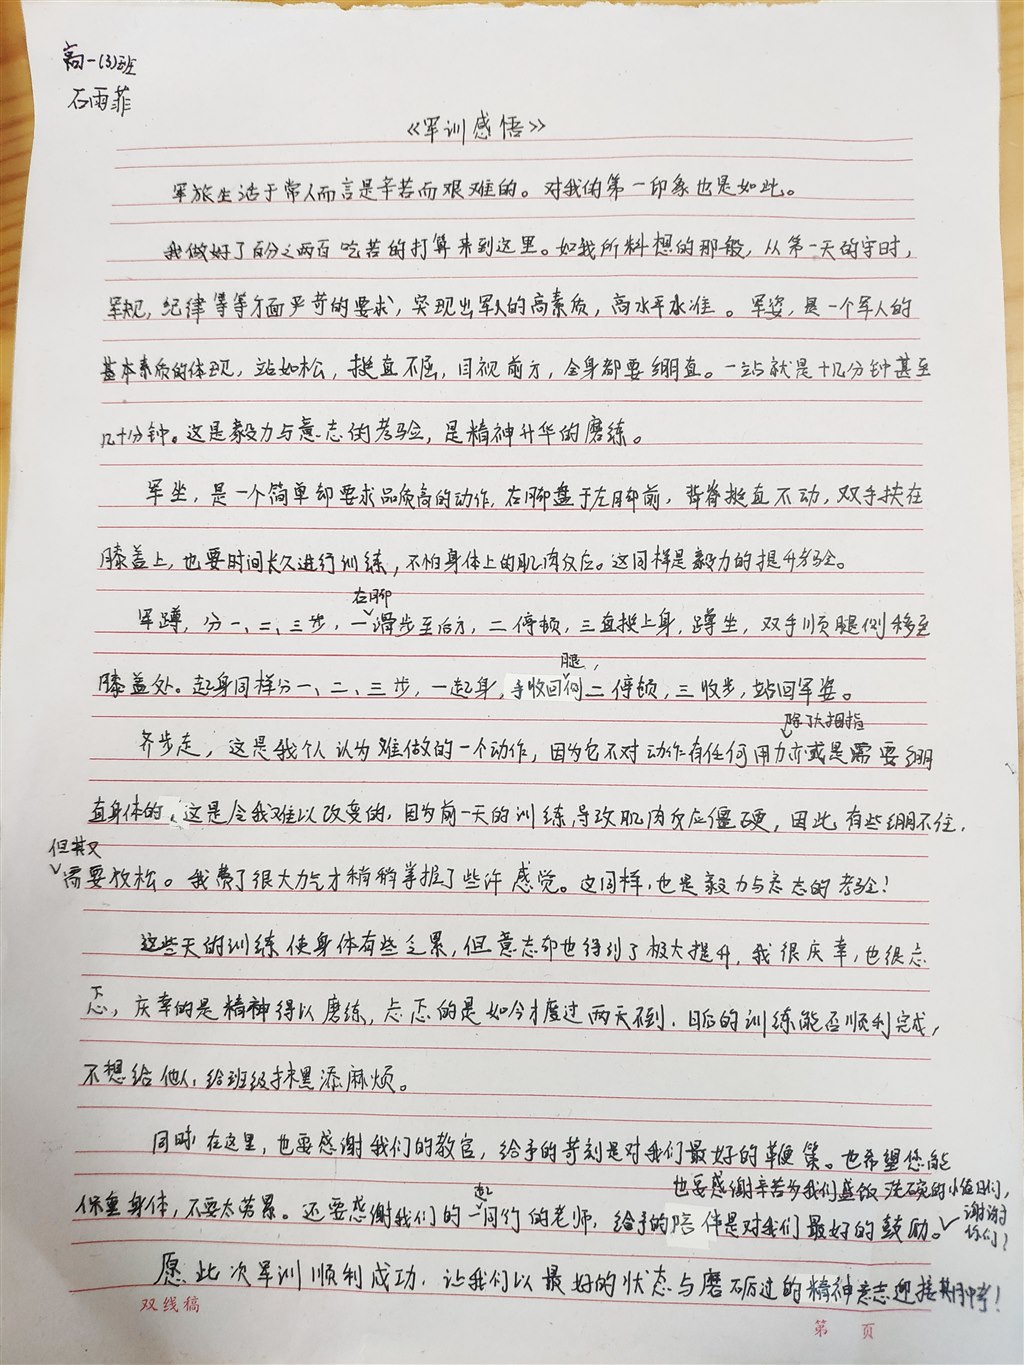 高一(3)班
石雨菲
《军训感悟》
军旅生活于常人而言是辛苦而艰难的。对我的第一印象也是如此。
我做好了百分之两百吃苦的打算来到这里。如我所料想的那般，从第一天的守时，
军规，纪律等等方面严苛的要求，突现出军人的高素质，高水平水准。军姿，是一个军人的
基本素质的体现，站如松，挺直不屈，目视前方，全身都要绷直。一站就是十几分钟甚至
几十分钟。这是毅力与意志的考验，是精神升华的磨练。
军坐，是一个简单却要求品质高的动作，右脚盘于左脚前，背脊挺直不动，双手扶在
膝盖上，也要时间长久进行训练，不怕身体上的肌肉反应。这同样是毅力的提升考验。
右脚
军蹲，分一、二、三步，一滑步至后方，二停顿，三直挺上身，蹲坐，双手顺腿侧移至
腿，
膝盖处。起身同样分一、二、三步，一起身，手收回侧二停顿，三收步，站回军姿。
除了大拇指
齐步走，这是我个人认为难做的一个动作，因为它不对动作有任何用力亦或是需要绷
直身体的，这是令我难以改变的，因为前一天的训练，导致肌肉反应僵硬，因此有些绷不住，
但其又
需要放松。我费了很大力气才稍稍掌握了些许感觉。这同样，也是毅力与意志的考验！
这些天的训练使身体有些乏累，但意志却也得到了极大提升，我很庆幸，也很忐
忑，庆幸的是精神得以磨练，忐忑的是如今才度过两天不到，日后的训练能否顺利完成，
不想给他人，给班级抹黑添麻烦。
同时，在这里，也要感谢我们的教官，给予的苛刻是对我们最好的鞭策。也希望您能
也要感谢辛苦为我们盛饭洗碗的小值日们，
谢谢
你们！
保重身体，不要太劳累。还要感谢我们的一同行的老师，给予的陪伴是对我们最好的鼓励。
愿此次军训顺利成功，让我们以最好的状态与磨砺过的精神意志迎接期中考！
双线稿
第 页